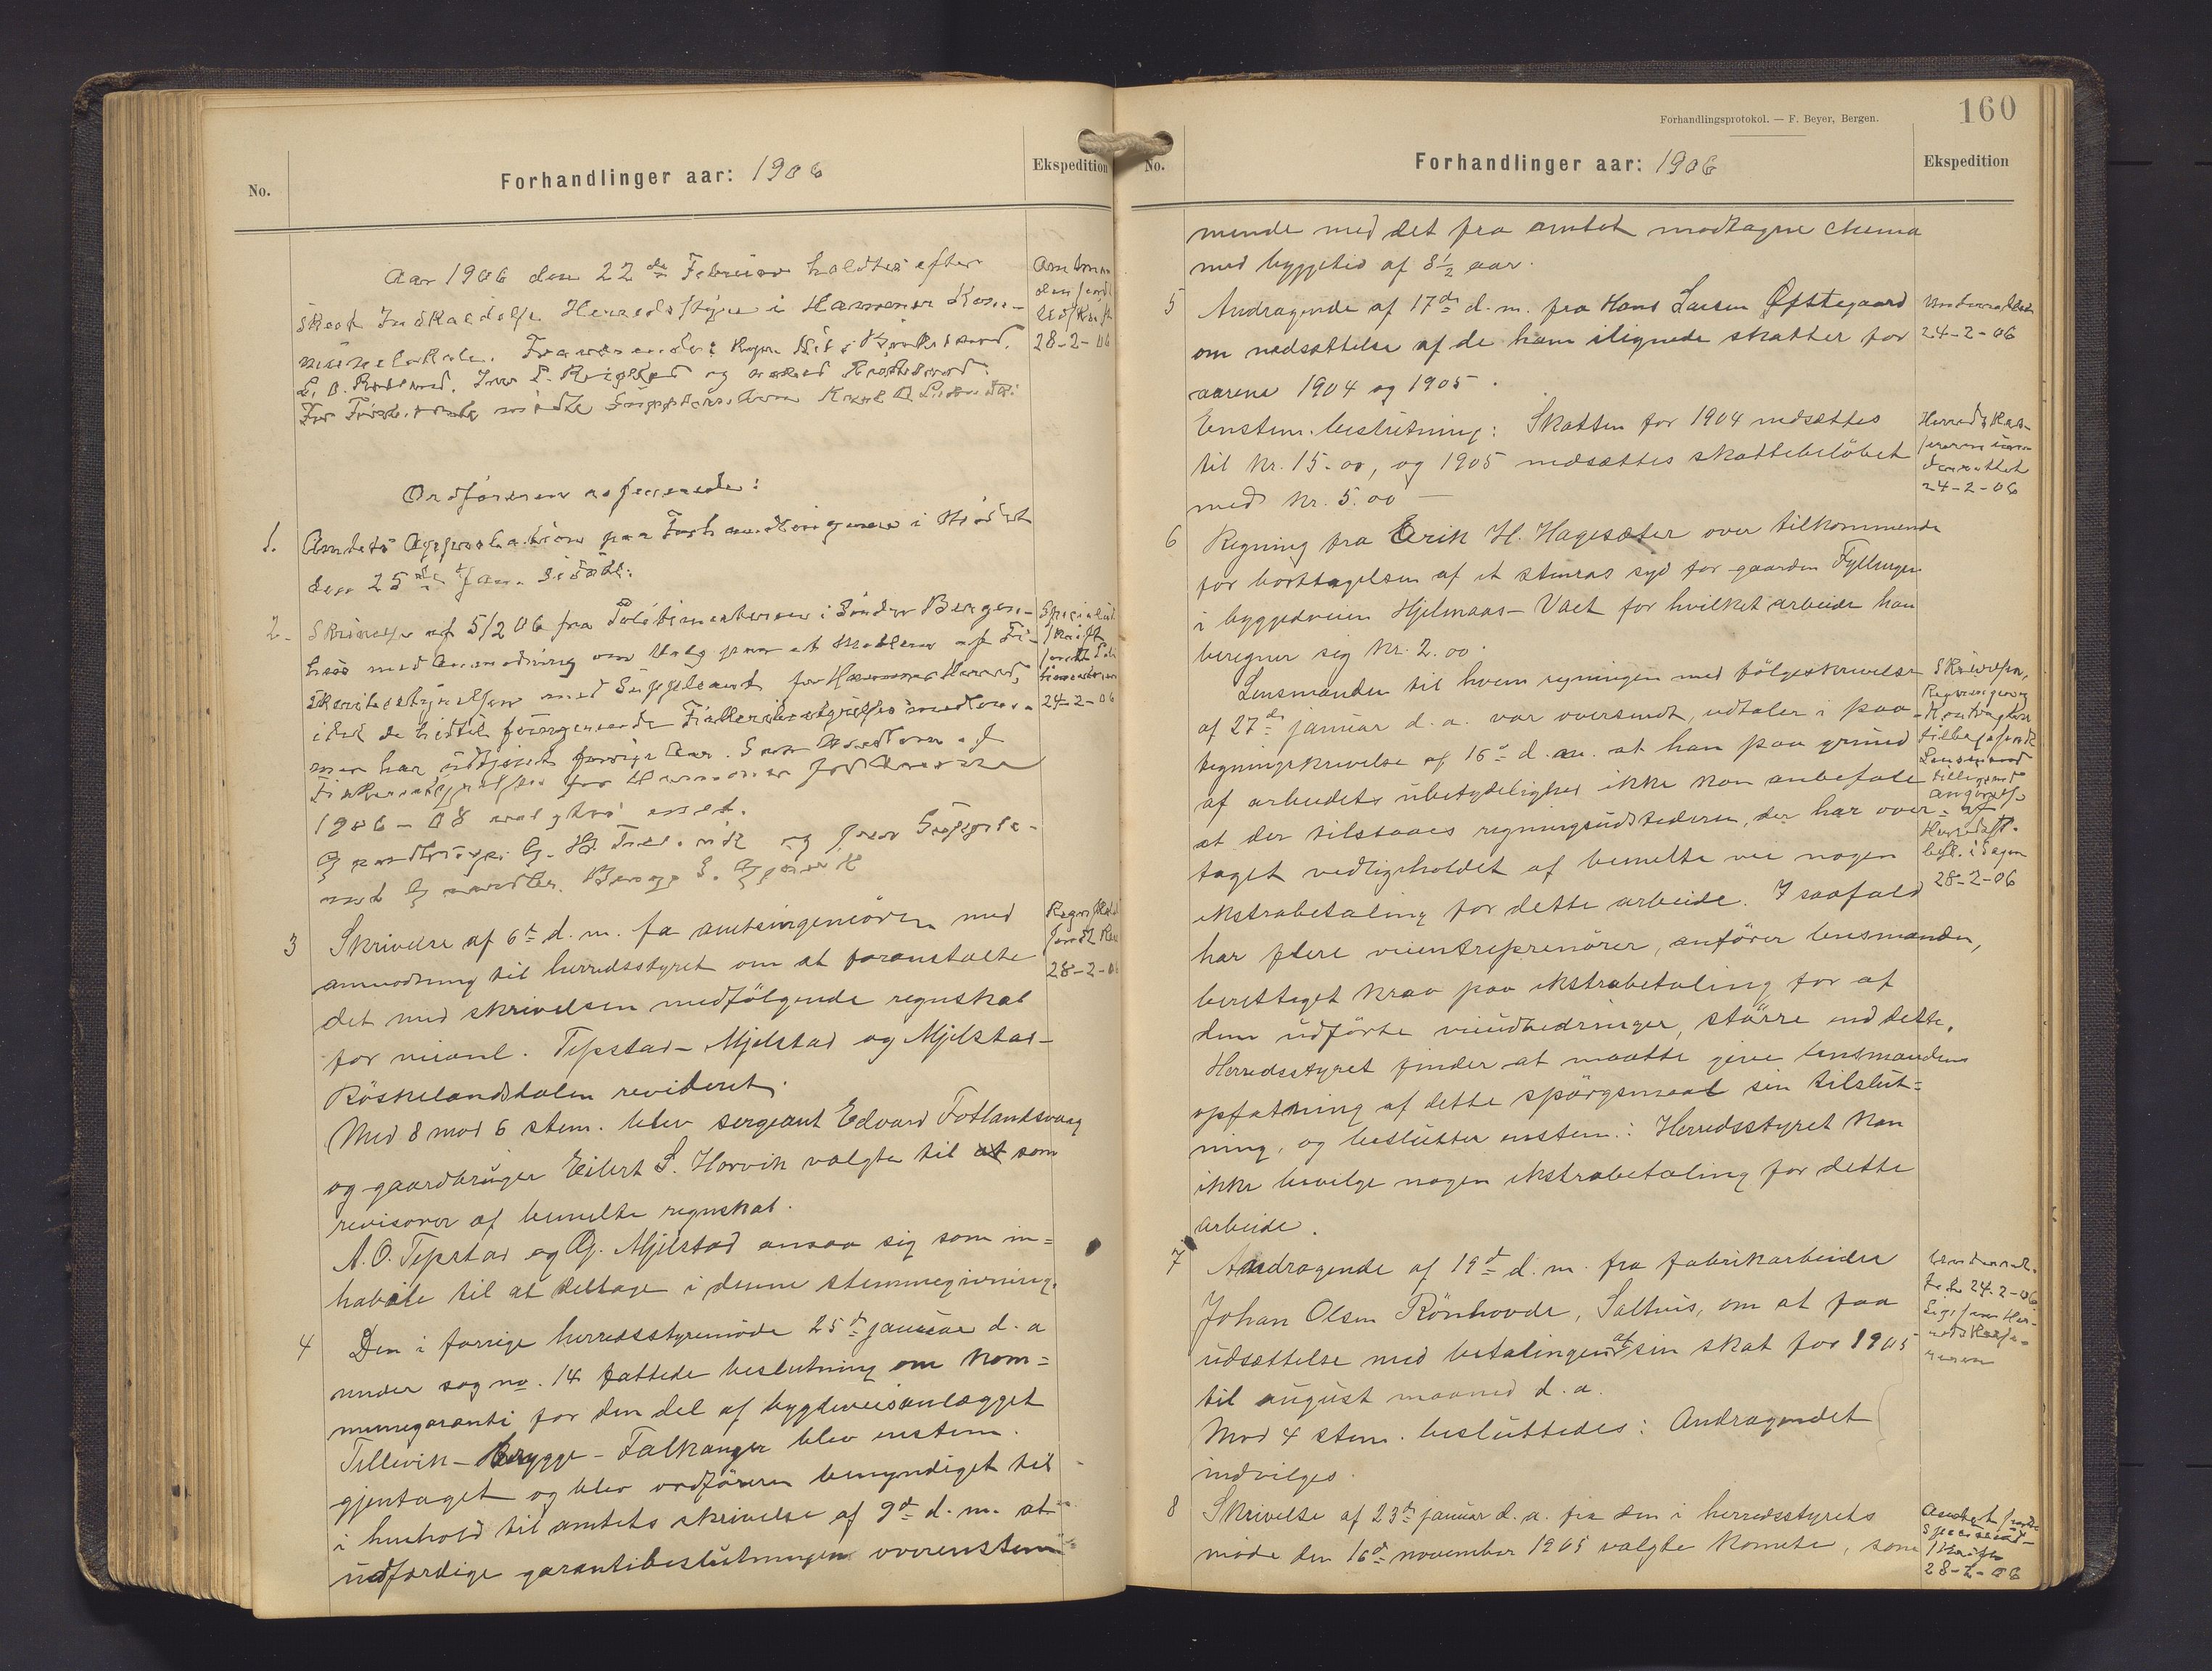 No.
Forhandlinger aar: 1906
Ekspedition
Aar 1906 den 22de Februar holdtes efter
skeet Indkaldelse Herredsstyre i Hammer Kom-
munelokale. Fraværende:
L. O.
For mødte Supplean
Amtman
den sendt
Udskrift
28-2-06
Ordføreren refererede:
1. Amtets Approbation paa Forhandlingerne i Mødet
den 25de Jan. sidstl.
2. Skrivelse af 5/2 06 fra Politimesteren i Søndre Bergen-
hus med Anmodning om Valg paa et Medlem af Fi-
skeribestyrelsen med Suppleant for Hammer Herred,
idet de hidtil fungerende Fiskeribestyrelsesmedlem-
mer har udtjent forrige Aar. Som Medlem af
Fiskeribestyrelsen for Hammer for Aarene
1906-08 valgtes enst.
Gaardbruger G. H. og som Supple-
ant Gaardbr.
Specialud
skrift
sendt Poli
timesteren
24-2-06
3 Skrivelse af 6te d. m. fa amtsingeniøren med
anmodning til herredsstyret om at foranstalte
det med skrivelsen medfölgende regnskab
for veianl. Tepstad- Mjelstad og Mjelstad-
Röskelandsdalen revideret.
Med 8 mod 6 stem. blev sergeant Edvard Fotlandsvaag
og gaardbruger Eilert S. Horvik valgte til at som
revisorer af bemelte regnskab.
A. O. Tepstad og Mjelstad ansaa sig som in=
habile til at deltage i denne stemmegivning.
28-2-06
4 Den i forrige herredsstyremöde 25de januar d. a
under sag no. 14 fattede beslutning om kom=
munegaranti for den del af bygdeveisanlægget
Tellevik - Brygge - Falkanger blev enstem.
gjentaget og blev ordföreren bemyndiget til
i henhold til amtets skrivelse af 9de d. m. at
udfærdige garantibeslutningen overenstem
Forhandlingsprotokol. — F. Beyer, Bergen.
160
No.
Forhandlinger aar: 1906
Ekspedition
mende med det fra amtet modtagne chema
med byggetid af 8 1/2 aar.
5 Andragende af 17de d. m. fra Hans Larsen Øfstegaard
om nedsættelse af de ham ilignede skatter for
aarene 1904 og 1905.
Enstem. beslutning: Skatten for 1904 nedsættes
til kr. 15.00, og 1905 nedsættes skattebelöbet
med kr. 5.00 —
Underrettet
24-2-06
Herredskas-
sereren un-
derrettet
24-2-06
6 Regning fra Erik H. Hagesæter over tilkommende
for borttagelsen af et stenras syd for gaarden Fyllingen
i byggedveien Hjelmaas - Vaet for hvilket arbeide han
beregner sig kr. 2.00.
Lensmanden til hvem regningen med fölgeskrivelse
af 27de januar d. a. var oversendt, udtaler i paa-
tegningskrivelse af 16de d. m. at han paa grund
af arbeidets ubetydelighed ikke kan anbefale
at der tilstaaes regningsudstederen, der har over=
taget vedligeholdet af bemelte vei nogen
ekstrabetaling for dette arbeide. I saafald
har flere veientreprenörer, anförer lensmanden,
berettiget krav paa ekstrabetaling for af
dem udförte veiudbedringer, större end dette.
Herredsstyret finder at maatte give lensmandens
opfatning af dette spörgsmaal sin tilslut=
ning, og beslutter enstem.: Herredsstyret kan
ikke bevilge nogen ekstrabetaling for dette
arbeide.
Skrivelsen,
Regningen og
Kontrakten
tilbagesendt
Lensmand
tilligemed
angivelse
af
Herredsst.
besl. i Sagen
28-2-06
7 Andragende af 19de d. m. fra fabrikarbeider
Johan Olsen Rönhovde, Salhus, om at faa
udsættelse med betalingen af sin skat for 1905
til august maaned d. a.
Mod 4 stem. besluttedes: Andragendet
indvilges.
Underret-
tet 24-2-06
Ligesaa Her-
redskasse-
reren
8 Skrivelse af 23de januar d. a. fra den i herredsstyrets
möde den 16de november 1905 valgte komete, som
Amtet sendt
Specialud-
skrift
28-2-06